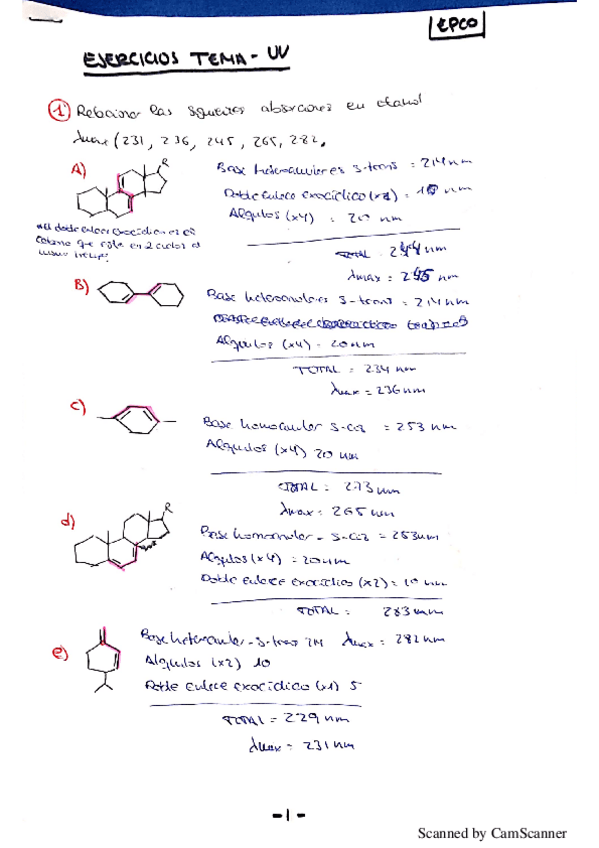 EPCO
EJERCICIOS TEMA - UV
1) Relacionar las siguientes absorciones en etanol
λmax (231, 236, 245, 265, 282,
A)
R
Base heteroanulares s-trans = 214 nm
Doble enlace exocíclico (x2) = 10 nm
Alquilos (x4) = 20 nm
TOTAL = 244 nm
λmax = 245 nm
B)
Base heteroanulares s-trans = 214 nm
Alquilos (x4) = 20nm
TOTAL = 234 nm
λmax = 236nm
c)
Base homoanular s-cis = 253 nm
Alquilos (x4) 20 nm
TOTAL = 273 nm
λmax = 265 nm
d)
R
Base homoanular - s-cis = 253nm
Alquilos (x4) = 20nm
Doble enlace exocíclico (x2) = 10 nm
TOTAL = 283 nm
e)
Base heteroanular - s-trans 214 λmax = 282 nm
Alquilos (x2) 10
Doble enlace exocíclico (x1) 5
TOTAL = 229 nm
λmax = 231 nm
- 1 -
Scanned by CamScanner